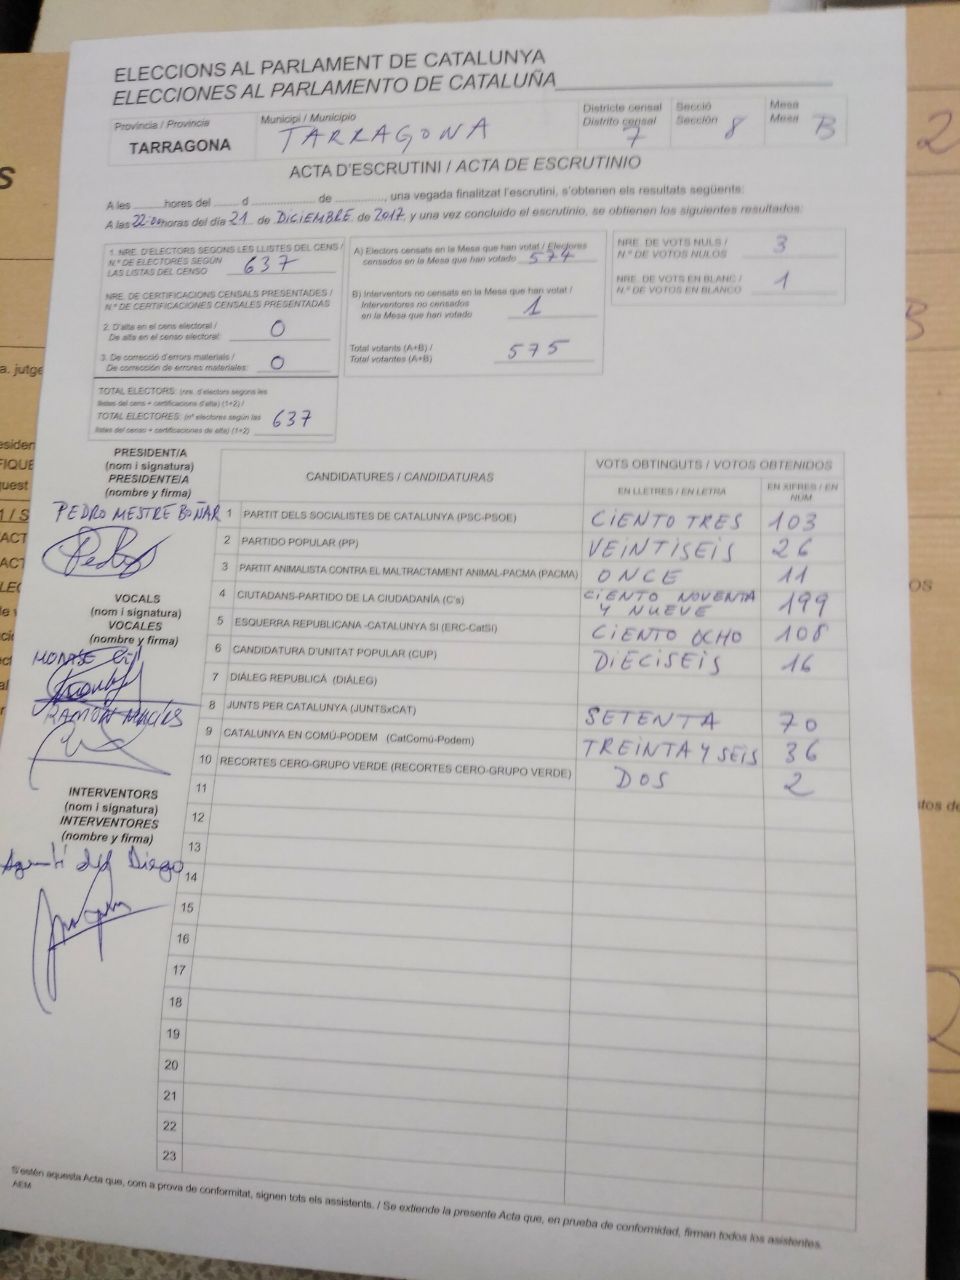 ELECCIONS AL PARLAMENT DE CATALUNYA
ELECCIONES AL PARLAMENTO DE CATALUÑA
Província / Provincia
TARRAGONA
Municipi / Municipio
TARRAGONA
Districte censal
Distrito censal
7
Secció
Sección
8
Mesa
Mesa
B
ACTA D'ESCRUTINI / ACTA DE ESCRUTINIO
A les ........hores del ........ d .................... de ..............., una vegada finalitzat l'escrutini, s'obtenen els resultats següents:
A las 22:00 horas del día 21 de DICIEMBRE de 2017, y una vez concluido el escrutinio, se obtienen los siguientes resultados:
1. NRE. D'ELECTORS SEGONS LES LLISTES DEL CENS /
N.º DE ELECTORES SEGÚN
LAS LISTAS DEL CENSO 637
NRE. DE CERTIFICACIONS CENSALS PRESENTADES /
N.º DE CERTIFICACIONES CENSALES PRESENTADAS
2. D'alta en el cens electoral /
De alta en el censo electoral: 0
3. De correcció d'errors materials /
De corrección de errores materiales: 0
TOTAL ELECTORS: (nre. d'electors segons les
llistes del cens + certificacions d'alta) (1+2) /
TOTAL ELECTORES: (nº electores según las
listas del censo + certificaciones de alta) (1+2) 637
A) Electors censats en la Mesa que han votat / Electores
censados en la Mesa que han votado 574
B) Interventors no censats en la Mesa que han votat /
Interventores no censados
en la Mesa que han votado 1
Total votants (A+B) /
Total votantes (A+B) 575
NRE. DE VOTS NULS /
N.º DE VOTOS NULOS 3
NRE. DE VOTS EN BLANC /
N.º DE VOTOS EN BLANCO 1
PRESIDENT/A
(nom i signatura)
PRESIDENTE/A
(nombre y firma)
PEDRO MESTRE BOÑAR
VOCALS
(nom i signatura)
VOCALES
(nombre y firma)
RAMÓN
INTERVENTORS
(nom i signatura)
INTERVENTORES
(nombre y firma)
Agustí del Diego
CANDIDATURES / CANDIDATURAS
VOTS OBTINGUTS / VOTOS OBTENIDOS
EN LLETRES / EN LETRA
EN XIFRES / EN NUM.
1 PARTIT DELS SOCIALISTES DE CATALUNYA (PSC-PSOE) CIENTO TRES 103
2 PARTIDO POPULAR (PP) VEINTISEIS 26
3 PARTIT ANIMALISTA CONTRA EL MALTRACTAMENT ANIMAL-PACMA (PACMA) ONCE 11
4 CIUTADANS-PARTIDO DE LA CIUDADANÍA (C's) CIENTO NOVENTA Y NUEVE 199
5 ESQUERRA REPUBLICANA -CATALUNYA SI (ERC-CatSí) CIENTO OCHO 108
6 CANDIDATURA D'UNITAT POPULAR (CUP) DIECISEIS 16
7 DIÀLEG REPUBLICÀ (DIÀLEG)
8 JUNTS PER CATALUNYA (JUNTSxCAT) SETENTA 70
9 CATALUNYA EN COMÚ-PODEM (CatComú-Podem) TREINTA Y SEIS 36
10 RECORTES CERO-GRUPO VERDE (RECORTES CERO-GRUPO VERDE) DOS 2
11
12
13
14
15
16
17
18
19
20
21
22
23
S'estén aquesta Acta que, com a prova de conformitat, signen tots els assistents. / Se extiende la presente Acta que, en prueba de conformidad, firman todos los asistentes.
AEM